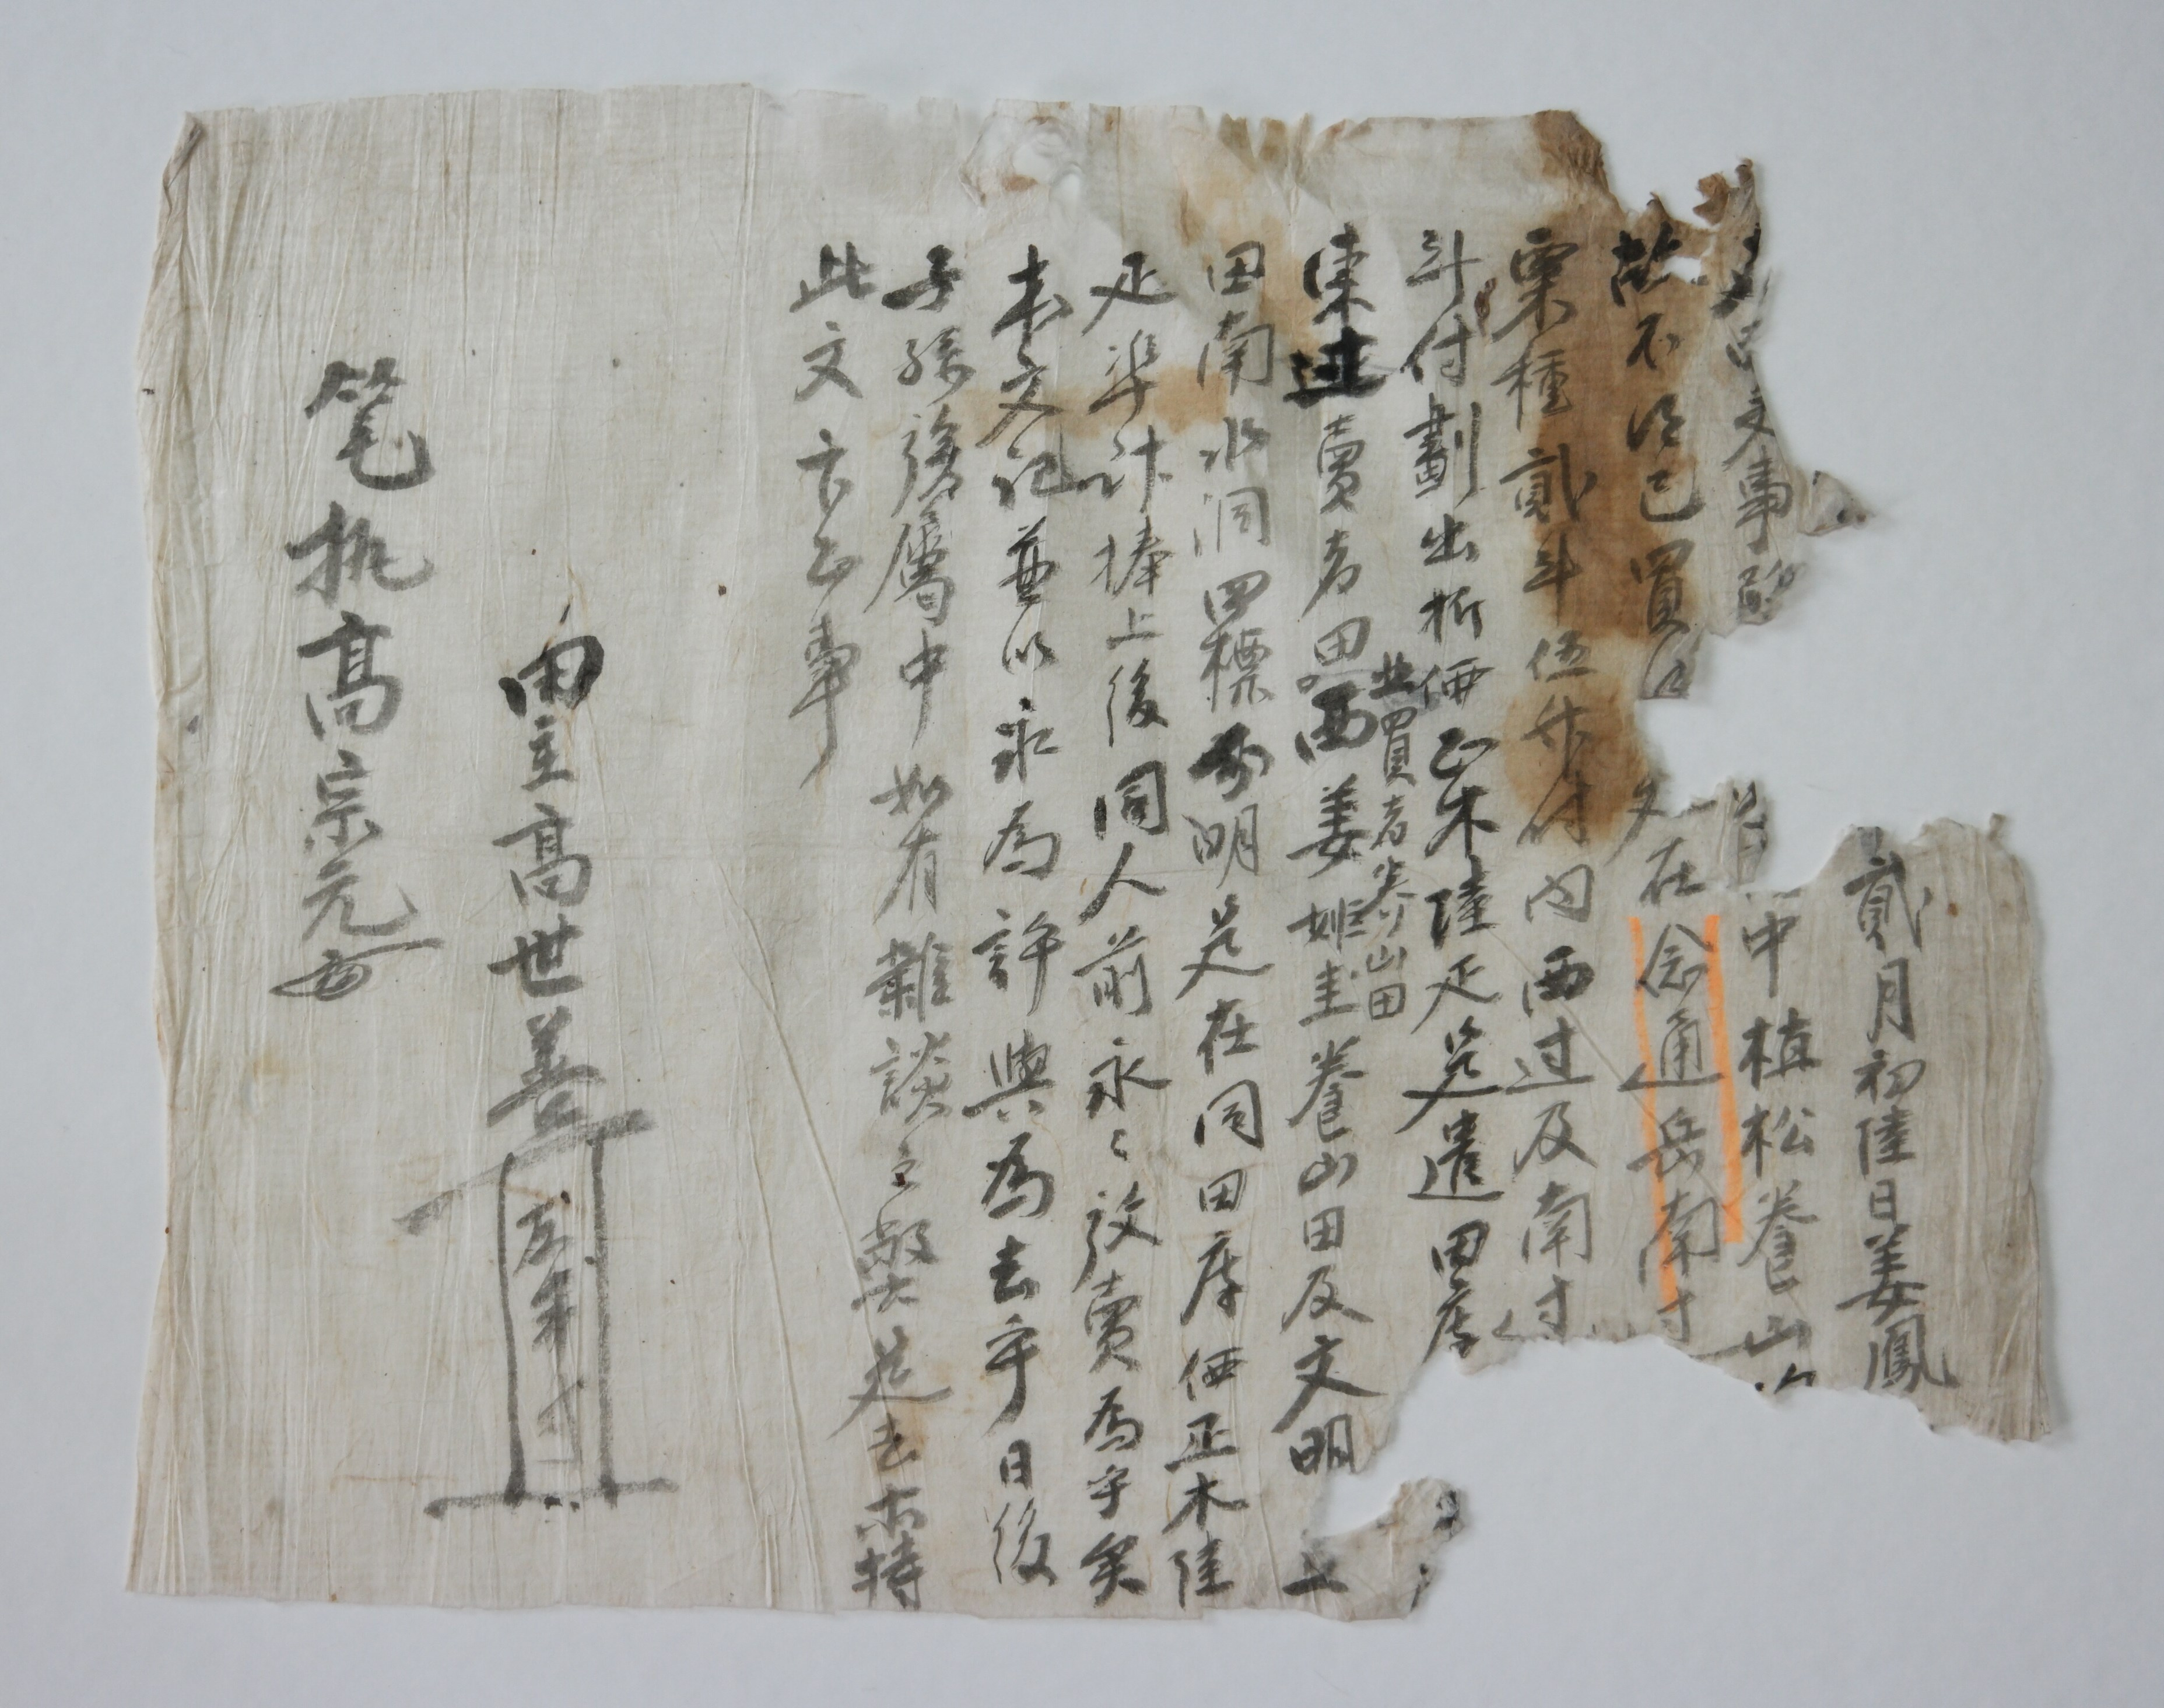 貳月初陸日姜鳳
文事
中植松養山
故不得已買
在念通岳南
粟種貳斗伍升付內西过及南过
斗付劃出折価正木陸疋是遣田庫
東边賣者田西姜姬圭養山田及文明
北買者養山田
田南水洞四標分明是在同田庫価正木陸
疋準計捧上後同人前永〻放賣爲乎矣
本文記並以永爲許與爲去乎日後
子孫族屬中如有雜談之弊是去等持
此文卞正事
田主高世善
左手寸
笔执高宗元